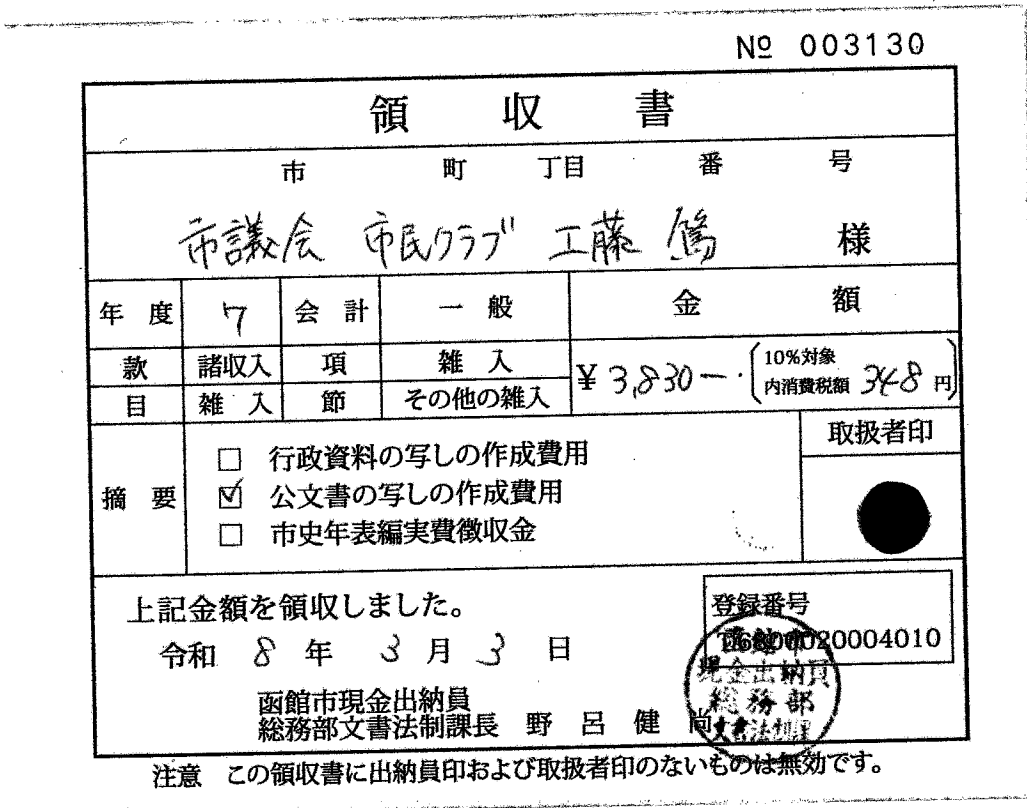 № 003130
領収書
市 町 丁目 番 号
市議会 市民クラブ 工藤 篤 様
年度 7 会計 一般 金額
款 諸収入 項 雑入
¥3,830ー. (10%対象 内消費税額 348円)
目 雑入 節 その他の雑入
摘要
□ 行政資料の写しの作成費用
☑ 公文書の写しの作成費用
□ 市史年表編実費徴収金
取扱者印
上記金額を領収しました。
令和 8年 3月 3日
登録番号
T6000020004010
函館市現金出納員
総務部文書法制課長 野呂健尚
函館市
現金出納員
総務部
文書法制課
注意 この領収書に出納員印および取扱者印のないものは無効です。